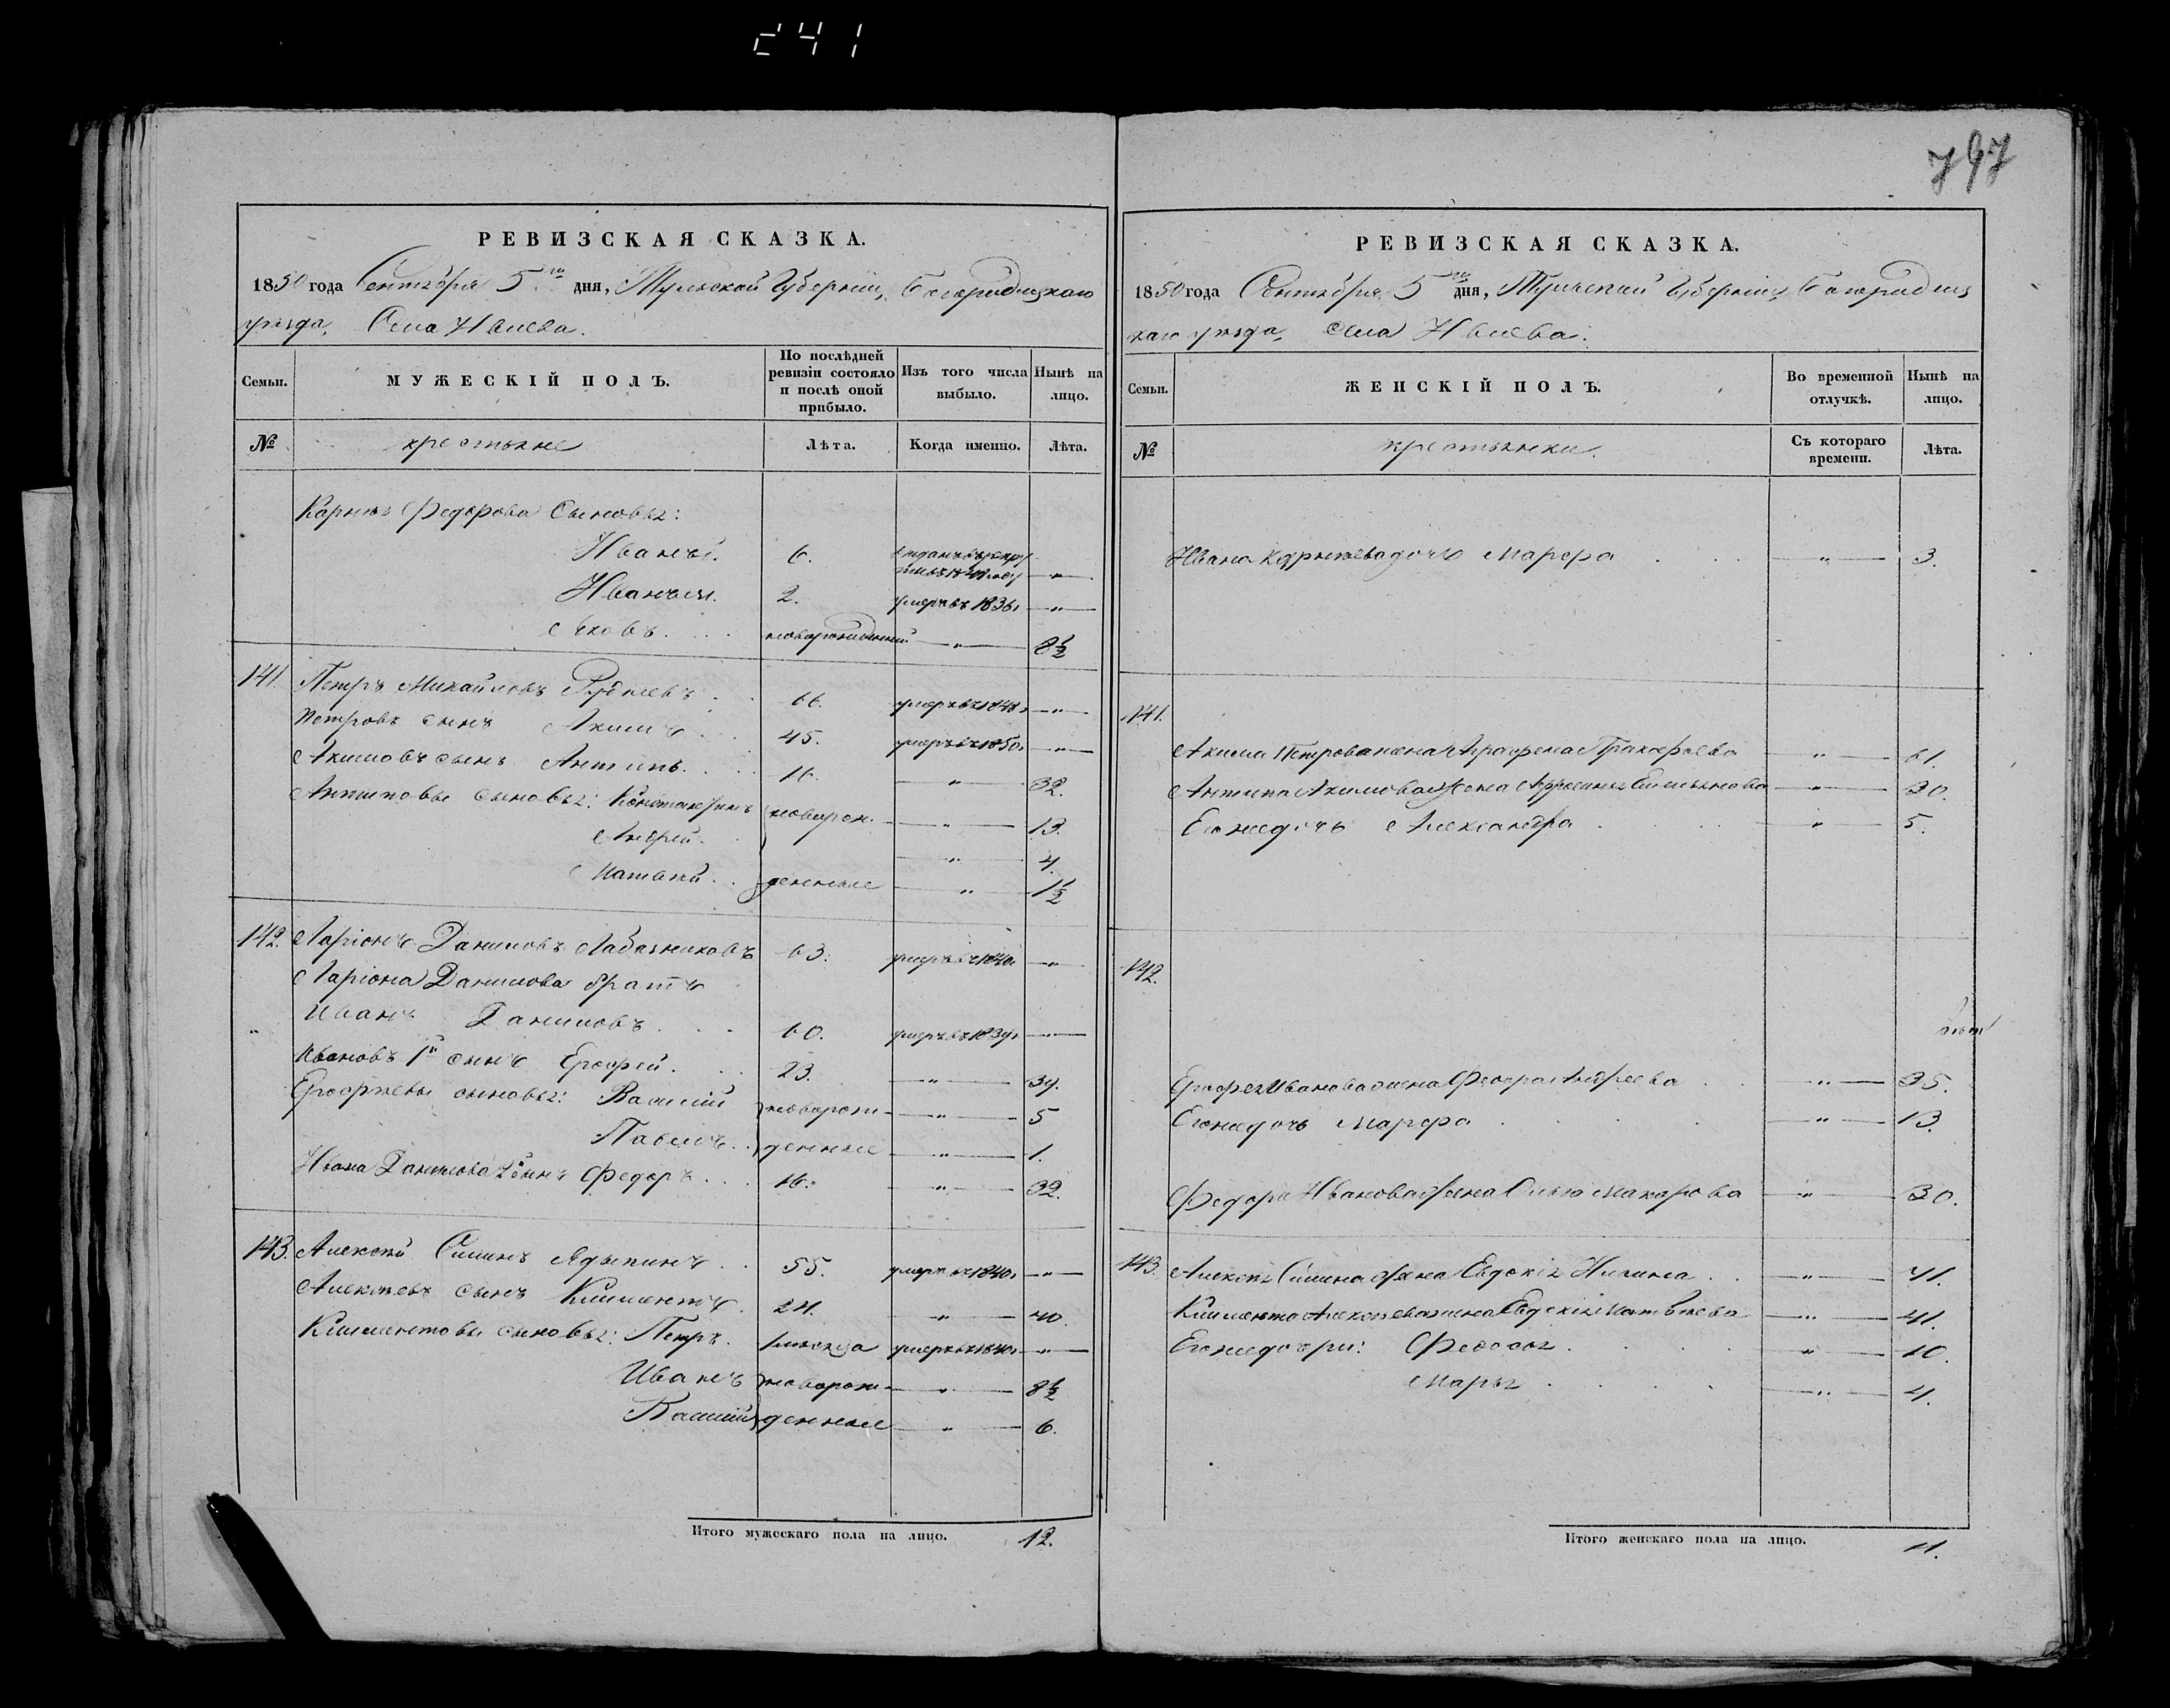 241
797
РЕВИЗСКАЯ СКАЗКА.
1850 года Сентября 5го дня, Тульской Губернии, Богородицкаго
уезда, Села Ивлева.
Семьи.
МУЖЕСКІЙ ПОЛЪ.
По послѣдней ревизіи состояло и послѣ оной прибыло.
Изъ того числа выбыло.
Нынѣ на лицо.
№ крестьяне Лѣта. Когда именно. Лѣта.
Федорова Сыновья:
Иванъ 1й. 6. "
Иванъ 2й. 2. умеръ въ 1836г "
Яковъ. новорожденный " 8½
141. Петръ Михайловъ 66. умеръ въ 1848г "
Петровъ сынъ Акимъ 45. умеръ въ 1850г "
Акимовъ сынъ Антипъ. 16. " 32.
Антиповы сыновья: Константинъ новорож- " 13.
Андрей. " 4.
Матвей. денные " 1½
142. Ларіонъ Даниловъ Лабазниковъ 63. умеръ въ 1840г "
Ларіона Данилова братъ
" Иванъ Даниловъ 60. умеръ въ 1839г
Ивановъ 1й сынъ Ерофей. 23. " 39.
Ерофеевы сыновья: Василий новорож- " 5
Павелъ денные " 1.
Ивана Данилова 2й сынъ Федоръ 16. " 32.
143. Алексей Силинъ 55. умеръ въ 1840г "
Алексеевъ сынъ Климентъ. 24. " 40.
Климентовы сыновья: Петръ. умеръ въ 1840г "
Иванъ новорож- " 8½
Василий денные " 6.
Итого мужескаго пола на лицо. 12.
РЕВИЗСКАЯ СКАЗКА.
1850 года Сентября 5го дня, Тульской Губернии, Богородиц
каго уезда, Села Ивлева.
Семьи.
ЖЕНСКІЙ ПОЛЪ.
Во временной отлучкѣ.
Нынѣ на лицо.
№ крестьянки. Съ котораго времени. Лѣта.
Ивана дочь Марфа " 3.
141.
Акима Петрова жена Аграфена Прокофьева " 61.
Антипа Акимова жена Афросинья Емельянова " 30.
Его же дочь Александра " 5.
142.
Ерофея Иванова жена Федора Андреева " 35.
Его же дочь Марфа " 13.
Федора Иванова жена Ольга Макарова " 30.
143. Алексея Силина жена Евдокія " 71.
Климента Алексеева жена Евдокія Матвеева " 41.
Его же дочери: Федосья " 10.
Марья " 4.
Итого женскаго пола на лицо. 11.